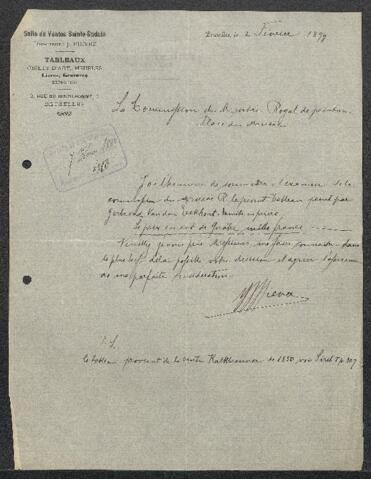 Salle de Ventes Sainte-Gudule
TABLEAUX
OBJETS D'ART, MEUBLES
Livres, Gravures
BRUXELLES
Bruxelles, le 2 Février 1899
La Commission du Musée Royal de peinture
Place du Musée
J'ai l'honneur de soumettre à l'examen de la
commission du Musée R. le présent tableau peint par
Gerbrand Van den Eekhout
Le prix en est de quatre mille francs
Veuillez je vous prie Messieurs me faire connaître dans
le plus bref délai possible votre décision et agréer l'assurance
de ma parfaite considération.
P.S.
Le tableau provient de la vente de 1850, voir